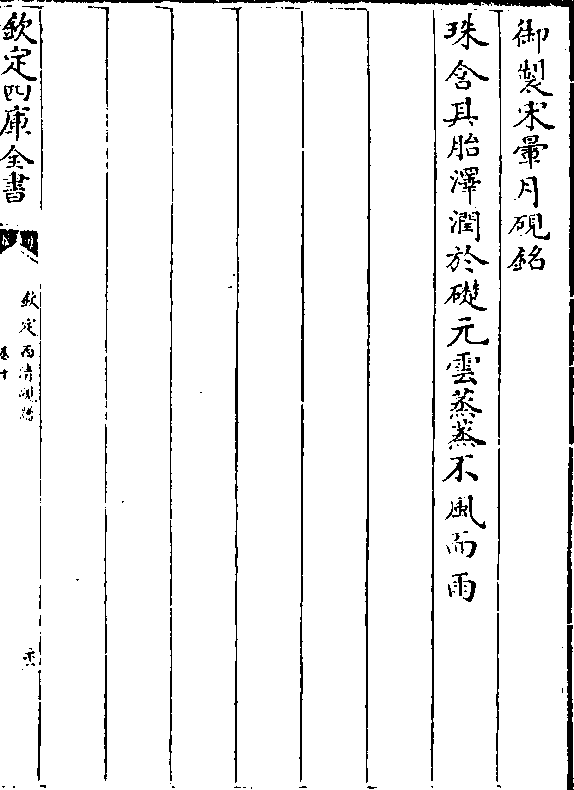 御製宋暈月硯銘
珠含其胎澤潤於礎元雲蒸蒸不風而雨
欽定四庫全書
欽定西清硯譜
卷十